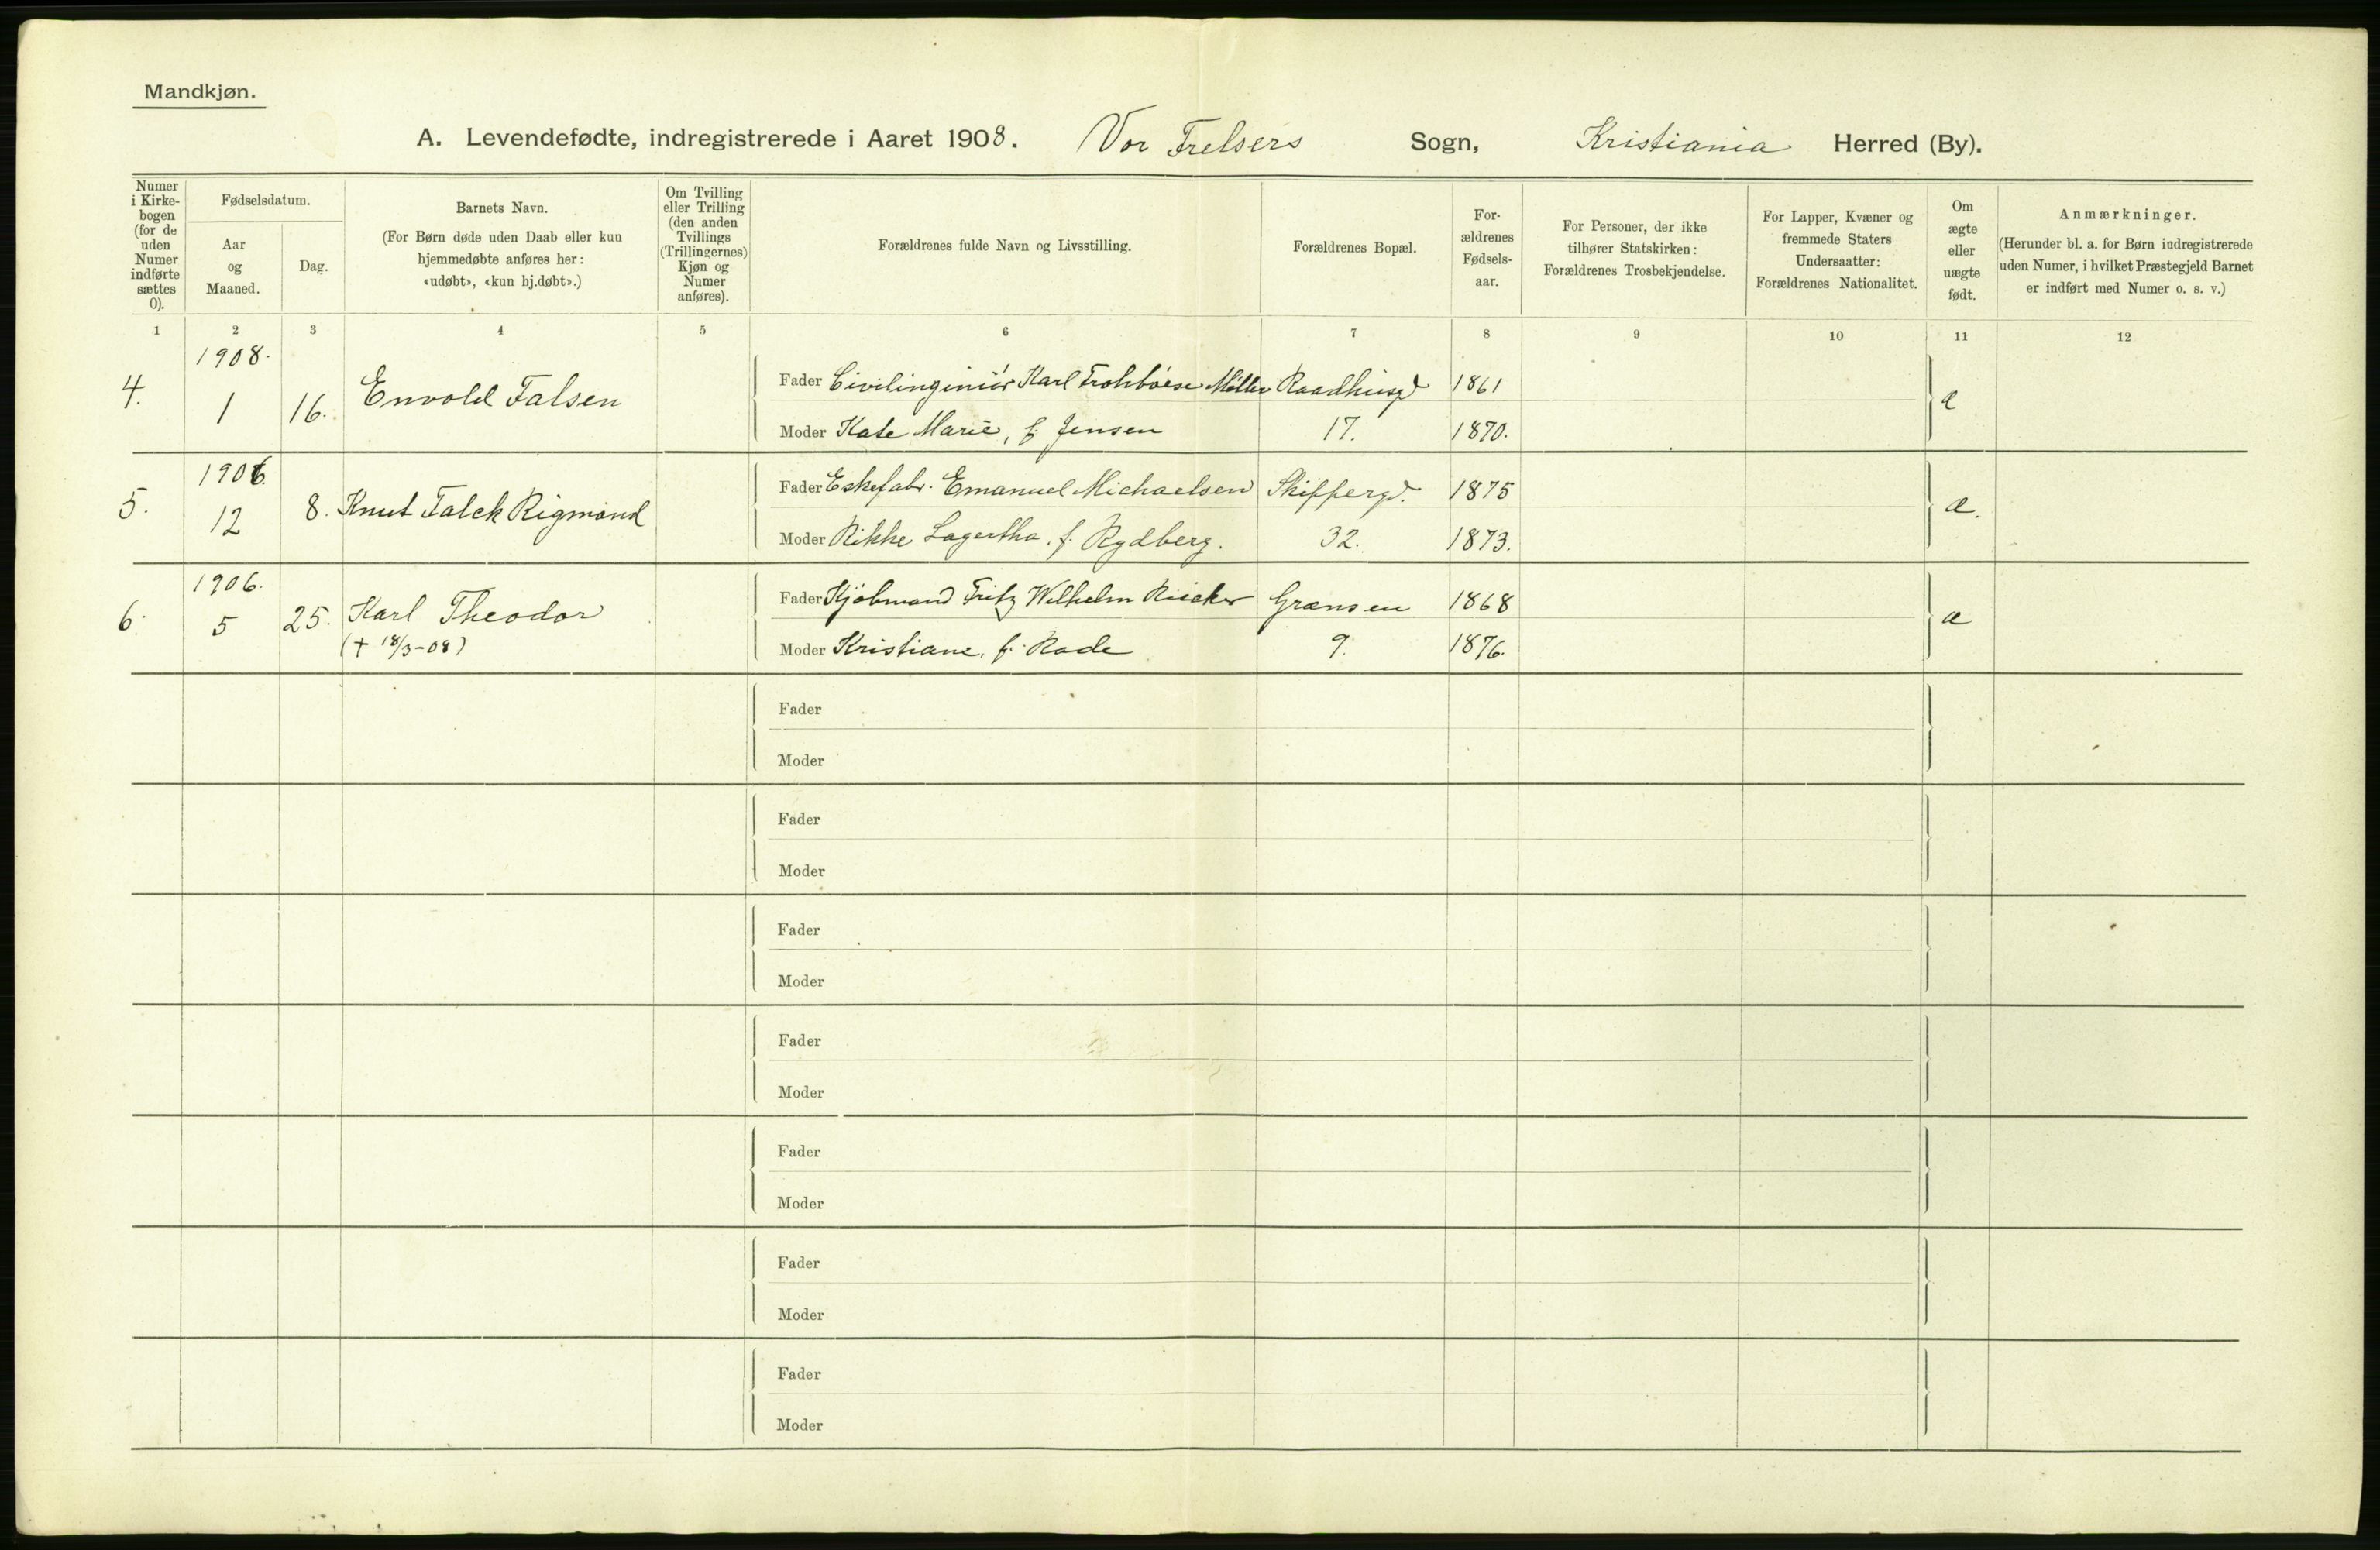 Mandkjøn.
A. Levendefødte, indregistrerede i Aaret 1908. Vor Frelsers Sogn, Kristiania Herred (By).
Numer i Kirkebogen (for de uden Numer indførte sættes 0).
Fødselsdatum.
Aar og Maaned.
Dag.
Barnets Navn.
(For Børn døde uden Daab eller kun
hjemmedøbte anføres her:
«udøbt», «kun hj.døbt».)
Om Tvilling
eller Trilling
(den anden
Tvillings
(Trillingernes)
Kjøn og
Numer
anføres).
Forældrenes fulde Navn og Livsstilling.
Forældrenes Bopæl.
For-
ældrenes
Fødsels-
aar.
For Personer, der ikke
tilhører Statskirken:
Forældrenes Trosbekjendelse.
For Lapper, Kvæner og
fremmede Staters
Undersaatter:
Forældrenes Nationalitet.
Om
ægte
eller
uægte
født.
Anmærkninger.
(Herunder bl. a. for Børn indregistrerede
uden Numer, i hvilket Præstegjeld Barnet
er indført med Numer o. s. v.)
1 2 3 4 5 6 7 8 9 10 11 12
1908.
4. 1 16. Envold Falsen
Fader Civilingeniör Karl Møller Raadhusgd 1861
Moder Kate Marie, f. Jensen 17. 1870.
æ
1906.
5. 12 8. Knut Falck Rigmond
Fader Eskefabr. Emanuel Michaelsen Skippergd. 1875
Moder Rikke Lagertha, f. Rydberg. 32. 1873.
æ.
1906.
6. 5 25. Karl Theodor
(† 18/3-08)
Fader Kjöbmand Fritz Wilhelm Grænsen 1868
Moder Kristiane, f. Rode 9. 1876.
æ
Fader
Moder
Fader
Moder
Fader
Moder
Fader
Moder
Fader
Moder
Fader
Moder
Fader
Moder